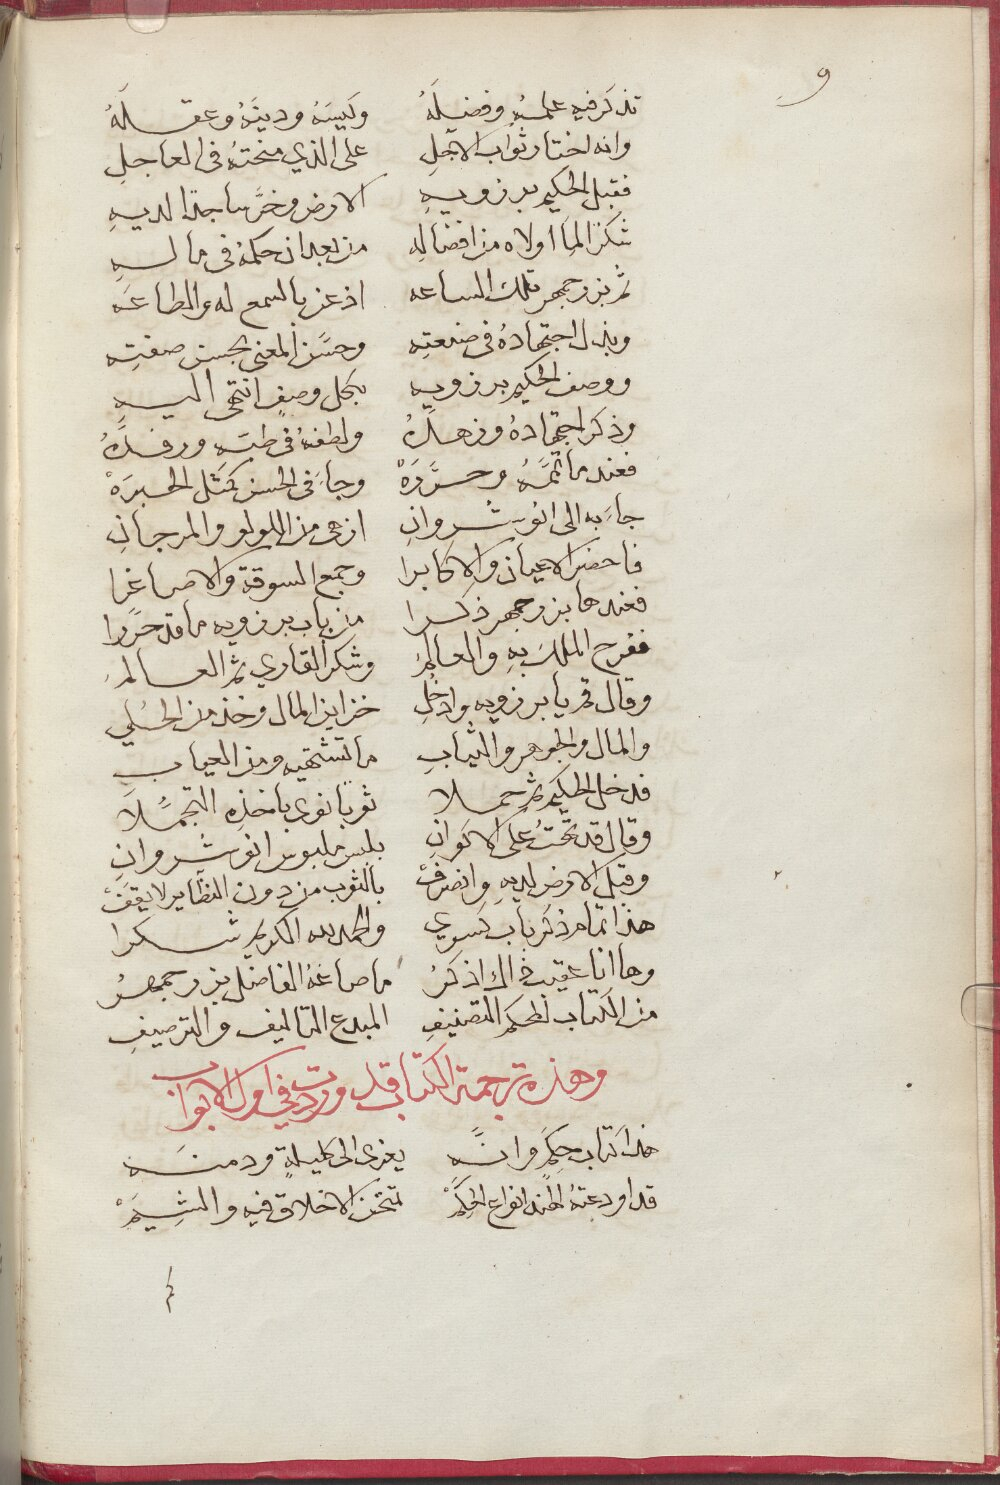 9
تذكر فيه علمهُ وفضلَهُ وكَيسَهُ ودينَهُ وعقلَهُ
وانه اختار ثواب الآجلِ على الذي منحتهُ في العاجلِ
فقبل الحكيم برزويهِ الارض وخرَّ ساجدًا لديهِ
شكرًا لما اولاه من افضالِهِ من بعد ان حكمهُ في مالهِ
ثم بزرجمهر تلك الساعه اذعن بالسمع له والطاعَه
وبذل اجتهادهُ في صنعتِه وحسَّن المعنى بحسن صفتِه
ووصف الحكيم برزويهِ بكل وصفٍ انتهى اليهِ
وذكر اجتهادهُ وزهدَهُ ولطفهُ في طبّه ورفدَهُ
فعند ما تمَّمَهُ وحرَّرَهْ وجاءَ في الحسن كمثل الحبرَهْ
جاءَ به الى انوشروانِ ازهى من اللولو والمرجانِ
فاحضر الاعيان والاكابرا وجمع السوقة والاصاغرا
فعندها بزرجمهر ذكرا من باب برزويه ما قد حرّرا
ففرح الملك بهِ والعالمُ وشكر القاري ثم العالمُ
وقال قم يا برزويه وادخُلِ خزاين المال وخذ من الحُلي
والمال والجوهر والثيابِ ما تشتهيه ومن العيابِ
فدخل الحكيم ثم حملا ثوبًا نوى باخذِه التجمُّلا
وقال قد تهتُ على الاكوانِ بلبس ملبوس انوشروانِ
وقبل الارض لديهِ وانصرفْ بالثوب من دون النظاير لا يقفْ
هذا تمام ذكر باب كسرى والحمد لله الكريم شكرا
وها انا عقيب ذالك اذكرُ ما صاغهُ الفاضل بزرجمهرُ
من الكتاب المحكم التصنيفِ المبدع التاليف والترصيفِ
وهذه ترجمة الكتاب قد وردت في اول الابواب
هذا كتاب حِكَمٍ وانَّه يعزى الى كليلةٍ ودمنَه
قد اودعتهُ الهند انواع الحِكَمْ تمتحن الاخلاق فيه والشِيَمْ